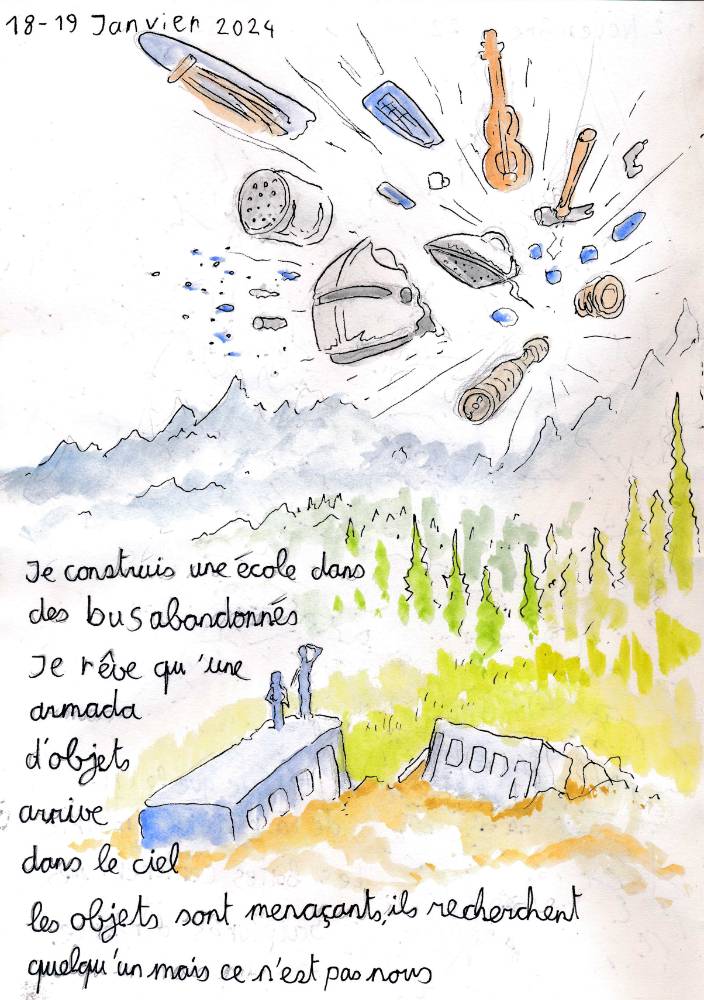 18-19 Janvier 2024
Je construis une école dans
des bus abandonnés
Je rêve qu'une
armada
d'objets
arrive
dans le ciel
les objets sont menaçants, ils recherchent
quelqu'un mais ce n'est pas nous